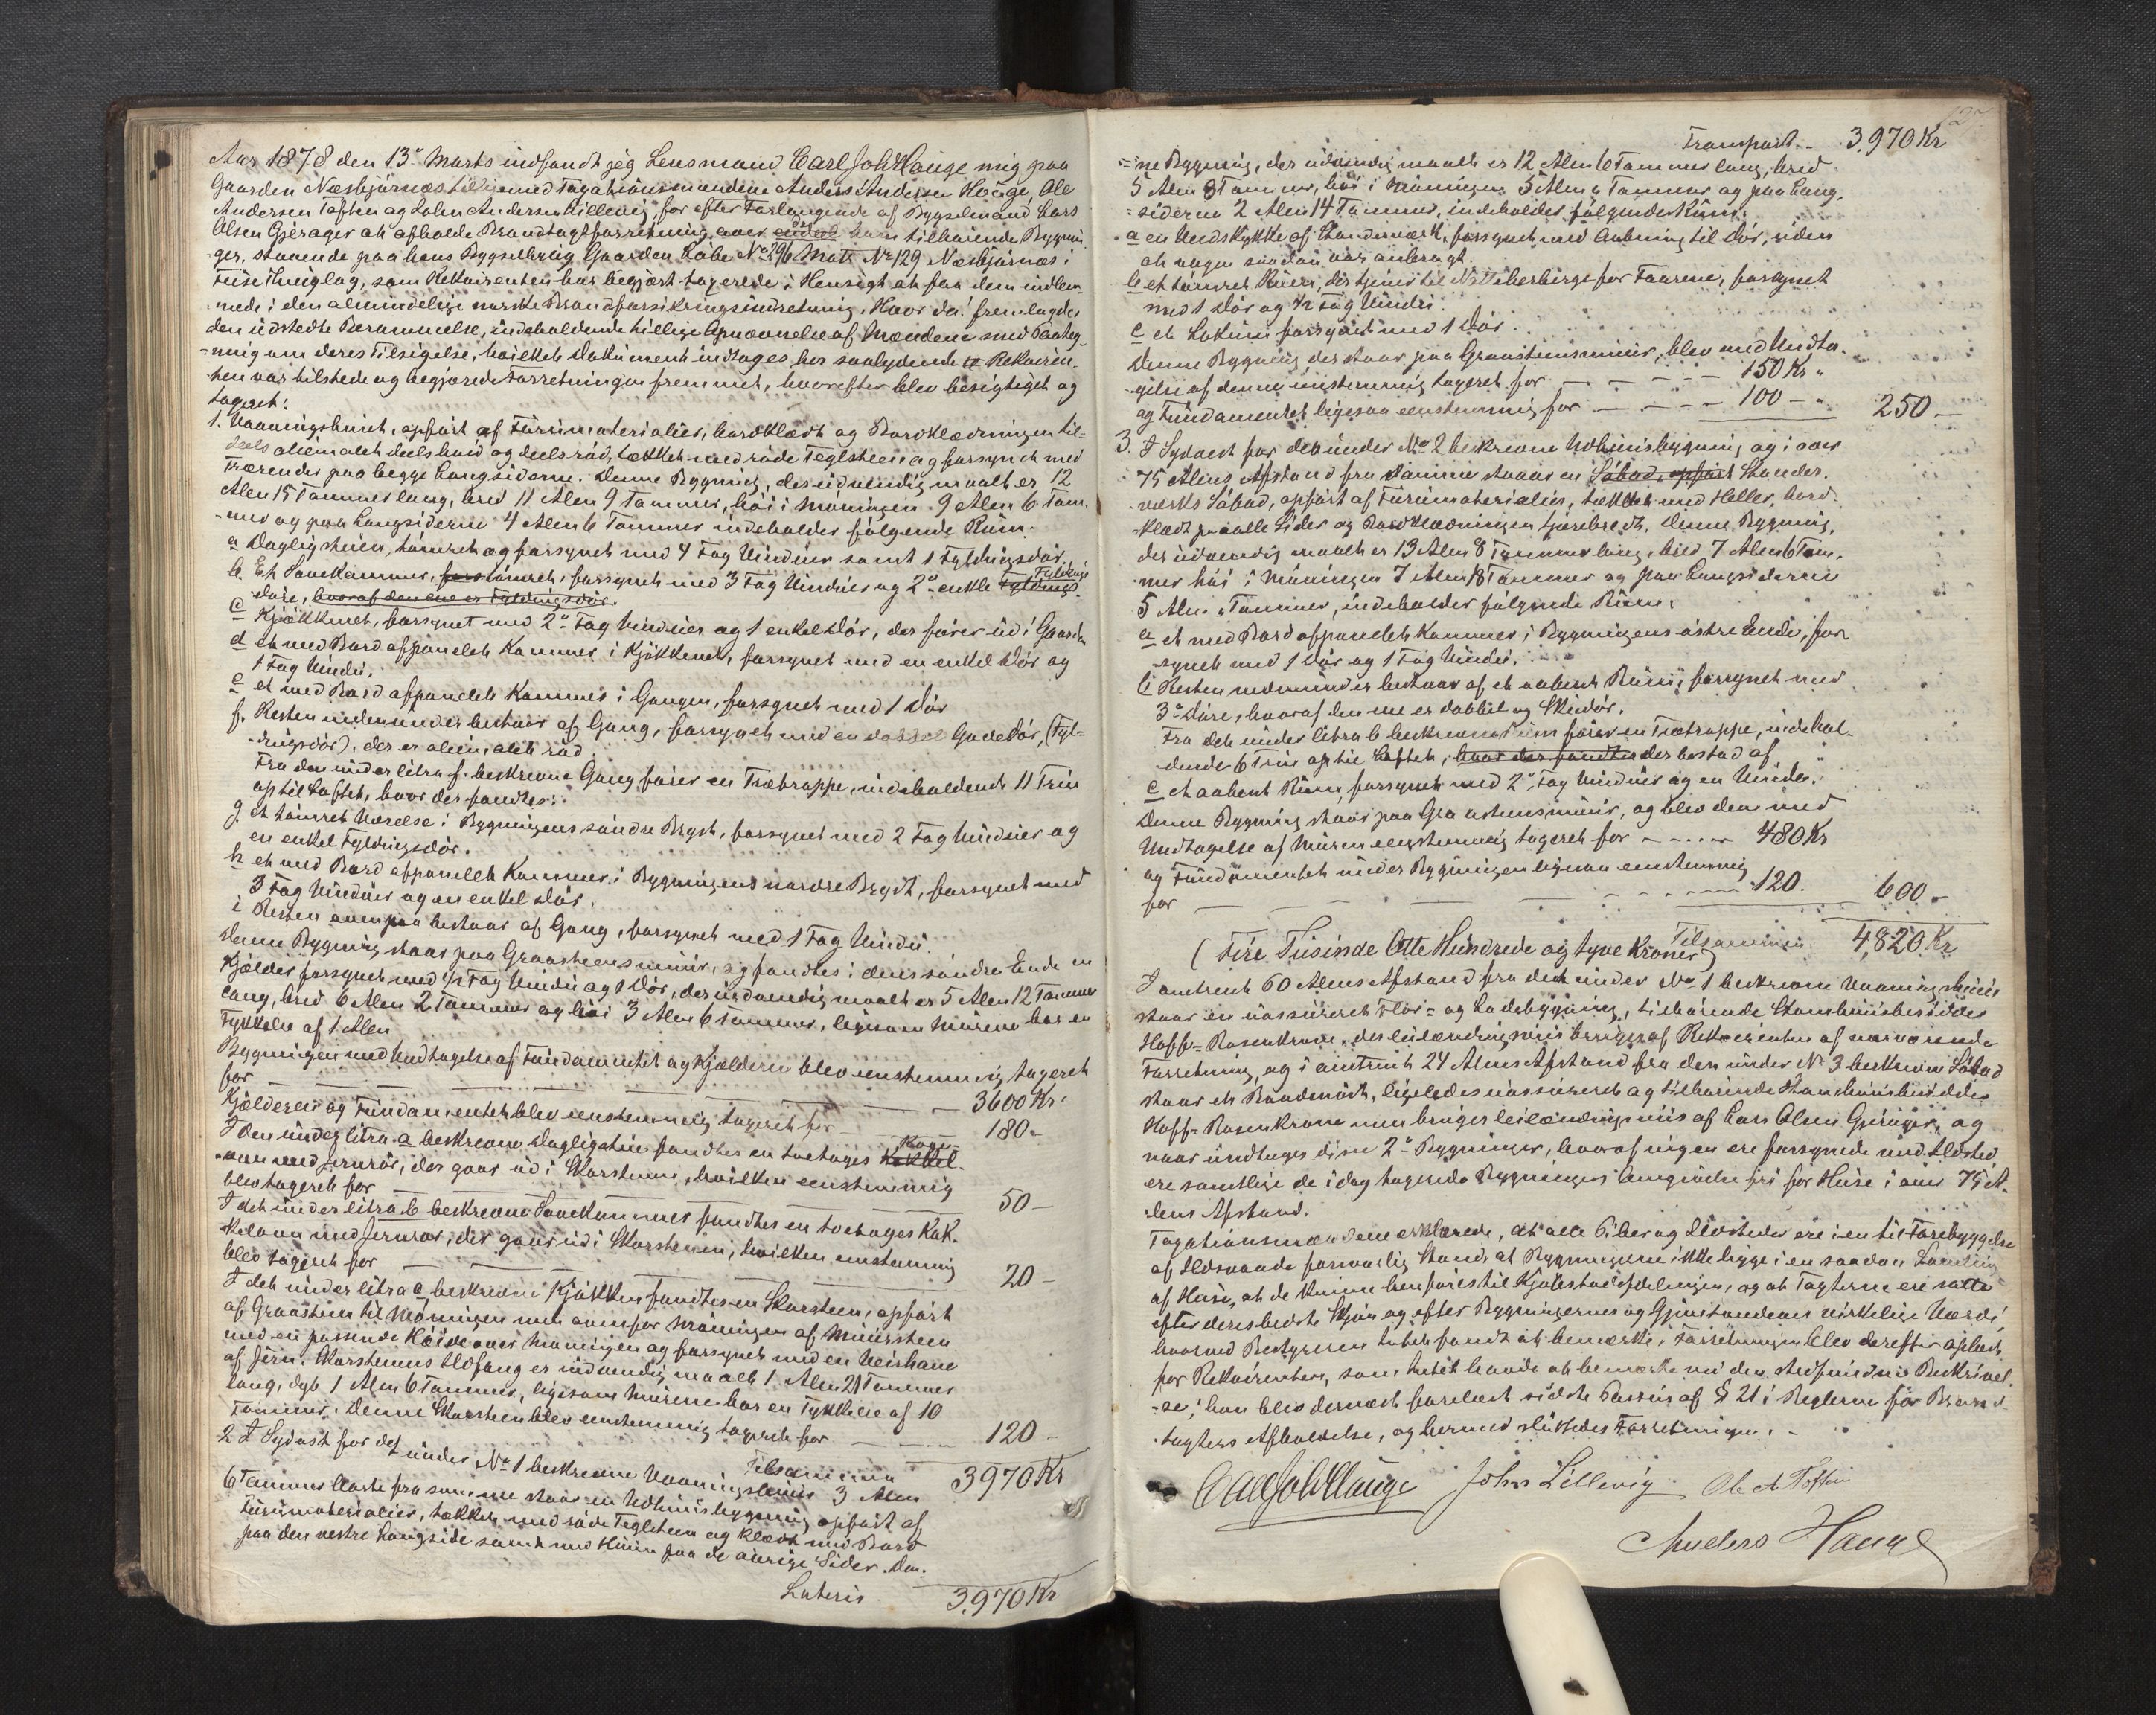 Aar 1878 den 13de Marts indfandt jeg Lensmand Carl Joh Hauge mig paa
Gaarden Næsbjørnæs tilligemed Taxationsmændene Anders Andersen Hauge, Ole
Andersen Toften og John Andersen Lillevig, for efter Forlangende af Bygselmand Lars
Olsen Gjerager at afholde Brandtaxtforretning over de ham tilhørende Bygnin-
ger, staaende paa hans Bygselbrug Gaarden Løbe No 296 Matr No 129 Næsbjørnæs i
Fuse Thinglag, som Rekvirenten har begjært taxerede i Hensigt at faa dem indlem-
mede i den almindelige norske Brandforsikringsindretning. Hvor da! fremlagdes
den udstedte Berammelse, indeholdende tillige Opnævnelse af Mændene med Paateg-
-ning om deres Tilsigelse, hvilket Dokument indtages her saalydende Rekviren-
ten var tilstede og begjærede Forretningen fremmet, hvorefter blev besigtiget og
taxeret:
1. Vaaningshuus, opført af Furumaterialier, bordklædt og Bordklædningen til-
deels oliemalet deels hvid og deels rød, tækket med røde Teglsteen og forsynet med
Trærender paa begge Langsiderne. Denne Bygning, der udvendig maalt er 12
Alen 15 Tommer lang, bred 11 Alen 9 Tommer, høi i Møningen 9 Alen 6 Tom-
-mer og paa Langsiderne 4 Alen 6 Tommer indeholder følgende Rum:
a Dagligstuen, tømret og forsynet med 4 Fag Vinduer samt 1 Fyldingsdør.
b. Et Sovekammer, tømret, forsynet med 3 Fag Vinduer og 2de enkle Fyldings
døre, hvoraf den ene er Fyldingsdør.
c Kjøkkenet, forsynet med 2de Fag Vinduer og 1 enkel Dør, der fører ud i Gaarden
d et med Bord afpanelet Kammer i Kjøkkenet, forsynet med en enkel Dør og
1 Fag Vindu.
e et med Bord afpanelet Kammer i Gangen, forsynet med 1 Dør
f. Resten nedenunder bestaar af Gang, forsynet med en dobbel Gadedør, (Fyl-
-dingsdør), der er oliemalet rød.
Fra den under litra f. beskrevne Gang fører en Trætrappe, indeholdende 11 Trin
op til Loftet, hvor der fandtes:
g et tømret Værelse i Bygningens søndre Bryst, forsynet med 2 Fag Vinduer og
en enkel Fyldingsdør.
h et med Bord afpanelet Kammer i Bygningens nordre Bryst, forsynet med
3 Fag Vinduer og en enkel Dør.
i Resten ovenpaa bestaar af Gang, forsynet med 1 Fag Vindu.
Denne Bygning staar paa Graasteensmuur, og fandtes i dens søndre Ende en
Kjælder forsynet med 1/2 Fag Vindu og 1 Dør, der indvendig maalt er 5 Alen 12 Tommer
lang, bred 6 Alen 2 Tommer og høi 3 Alen 6 Tommer, ligesom Murene har en
Tykkelse af 1 Alen
Bygningen med Undtagelse af Fundamentet og Kjælderen blev eenstemmig taxeret
for — — — 3600 Kr.
Kjælderen og Fundamentet blev eenstemmig taxeret for — 180 -
I den under litra a beskrevne Dagligstue fandtes en toetages Koge-
ovn med Jernrør, der gaar ud i Skorstenen, hvilken eenstemmig
blev taxeret for — — 50 -
I det under litra b beskrevne Sovekammer fandtes en toetages Kak-
kelovn med Jernrør, der gaar ud i Skorstenen, hvilken eenstemmig
blev taxeret for — — 20 -
I det under litra c beskrevne Kjøkken fandtes en Skorsteen, opført
af Graasteen til Møningen men ovenfor Møningen af Muursteen
med en passende Høide over Møningen og forsynet med en Veirhane
af Jern. Skorstenens Ildfang er indvendig maalt 1 Alen 21 Tommer
lang, dyb 1 Alen 6 Tommer, ligesom Murene har en Tykkelse af 10
Tommer. Denne Skorsteen blev eenstemmig taxeret for — 120 -
Tilsammen 3970 Kr
2 I Sydost for det under No 1 beskrevne Vaaningshuus 3 Alen
6 Tommer borte fra samme staar en Udhuusbygning opført af
Furumaterialier, tækket med røde Teglsteen og klædt med Bord
paa den vestre Langside samt med Huun paa de øvrige Sider. Den-
Lateris 3.970 Kr
Transport.. 3.970 Kr
=ne Bygning, der udvendig maalt er 12 Alen 6 Tommer lang, bred
5 Alen 8 Tommer, høi i Møningen 5 Alen " Tommer og paa Lang-
-siderne 2 Alen 14 Tommer, indeholder følgende Rum:
a en Vedskykke af Standerværk, forsynet med Aabning til Dør, uden
at nogen saadan var anbragt.
b et tømret Rum, der tjener til Natteherberge for Faarene, forsynet
med 1 Dør og 1/2 Fag Vindu.
c et Lokum forsynet med 1 Dør.
Denne Bygning der staar paa Graasteensmuur, blev med Undta-
gelse af denne eenstemmig taxeret for — — 150 Kr "
og Fundamentet ligesaa eenstemmig for — — 100 - " 250 -
3. I Sydvest for den under No 2 beskrevne Udhuusbygning og i over
75 Alens Afstand fra samme staar en Søbod, opført Stander-
-værks Søbod, opført af Furumaterialier, tækket med Heller, bord-
klædt paa alle Sider og Bordklædningen tjærebredt. Denne Bygning,
der udvendig maalt er 13 Alen 8 Tommer lang, bred 7 Alen 6 Tom-
mer høi i Møningen 7 Alen 18 Tommer og paa Langsiderne
5 Alen " Tommer, indeholder følgende Rum:
a et med Bord afpanelet Kammer i Bygningens østre Ende, for-
synet med 1 Dør og 1 Fag Vindu.
b Resten nedenunder bestaar af et aabent Rum, forsynet med
3de Døre, hvoraf den ene er dobbel og Skudør.
Fra det under litra b beskrevne Rum fører en Trætrappe, indehol-
dende 6 Trin op til Loftet, hvor der fandtes der bestod af
c et aabent Rum, forsynet med 2de Fag Vinduer og en Vinde.
Denne Bygning staar paa Graasteensmuur, og blev den med
Undtagelse af Muren eenstemmig taxeret for — — 480 Kr
og Fundamentet under Bygningen ligesaa eenstemmig
for — — — 120. 600 -
Tilsammen 4,820 Kr
(Fire Tusinde Otte Hundrede og tyve Kroner)
I omtrent 60 Alens Afstand fra det under No 1 beskrevne Vaaningshuus
staar en uassureret Flor= og Ladebygning, tilhørende Stamhuusbesidder
Hoff-Rosenkrone, der leilændingsviis bruges af Rekvirenten af nærværende
Forretning, og i omtrent 24 Alens Afstand fra den under No 3 beskrevne Søbod
staar et Baadenøst, ligeledes uassureret og tilhørende Stamhuusbesidder
Hoff-Rosenkrone men bruges leilændingsviis af Lars Olsen Gjerager, og
naar undtages disse 2de Bygninger, hvoraf ingen ere forsynede med Ildsted
ere samtlige de idag taxerede Bygningers Omgivelse fri for Huse i over 75 A-
lens Afstand.
Taxationsmændene erklærede, at alle Piber og Ildsteder ere i en til Forebyggelse
af Ildsvaade forsvarlig Stand, at Bygningerne ikke ligge i en saadan Samling
af Huse, at de kunne henføres til Kjøbstadafdelingen, og at Taxterne ere satte
efter deres bedste Skjøn og efter Bygningernes og Gjenstandenes virkelige Værdi,
hvorved Bestyreren Intet fandt at bemærke. Forretningen blev derefter oplæst
for Rekvirenten, som Intet havde at bemærke ved den stedfundne Beskrivel-
-se; han blev dernæst forelæst sidste Passus af § 21 i Reglerne for Brand-
taxters Afholdelse, og hermed sluttedes Forretningen. -
Carl Joh Hauge John Lillevig Ole A Toften
Anders Hauge